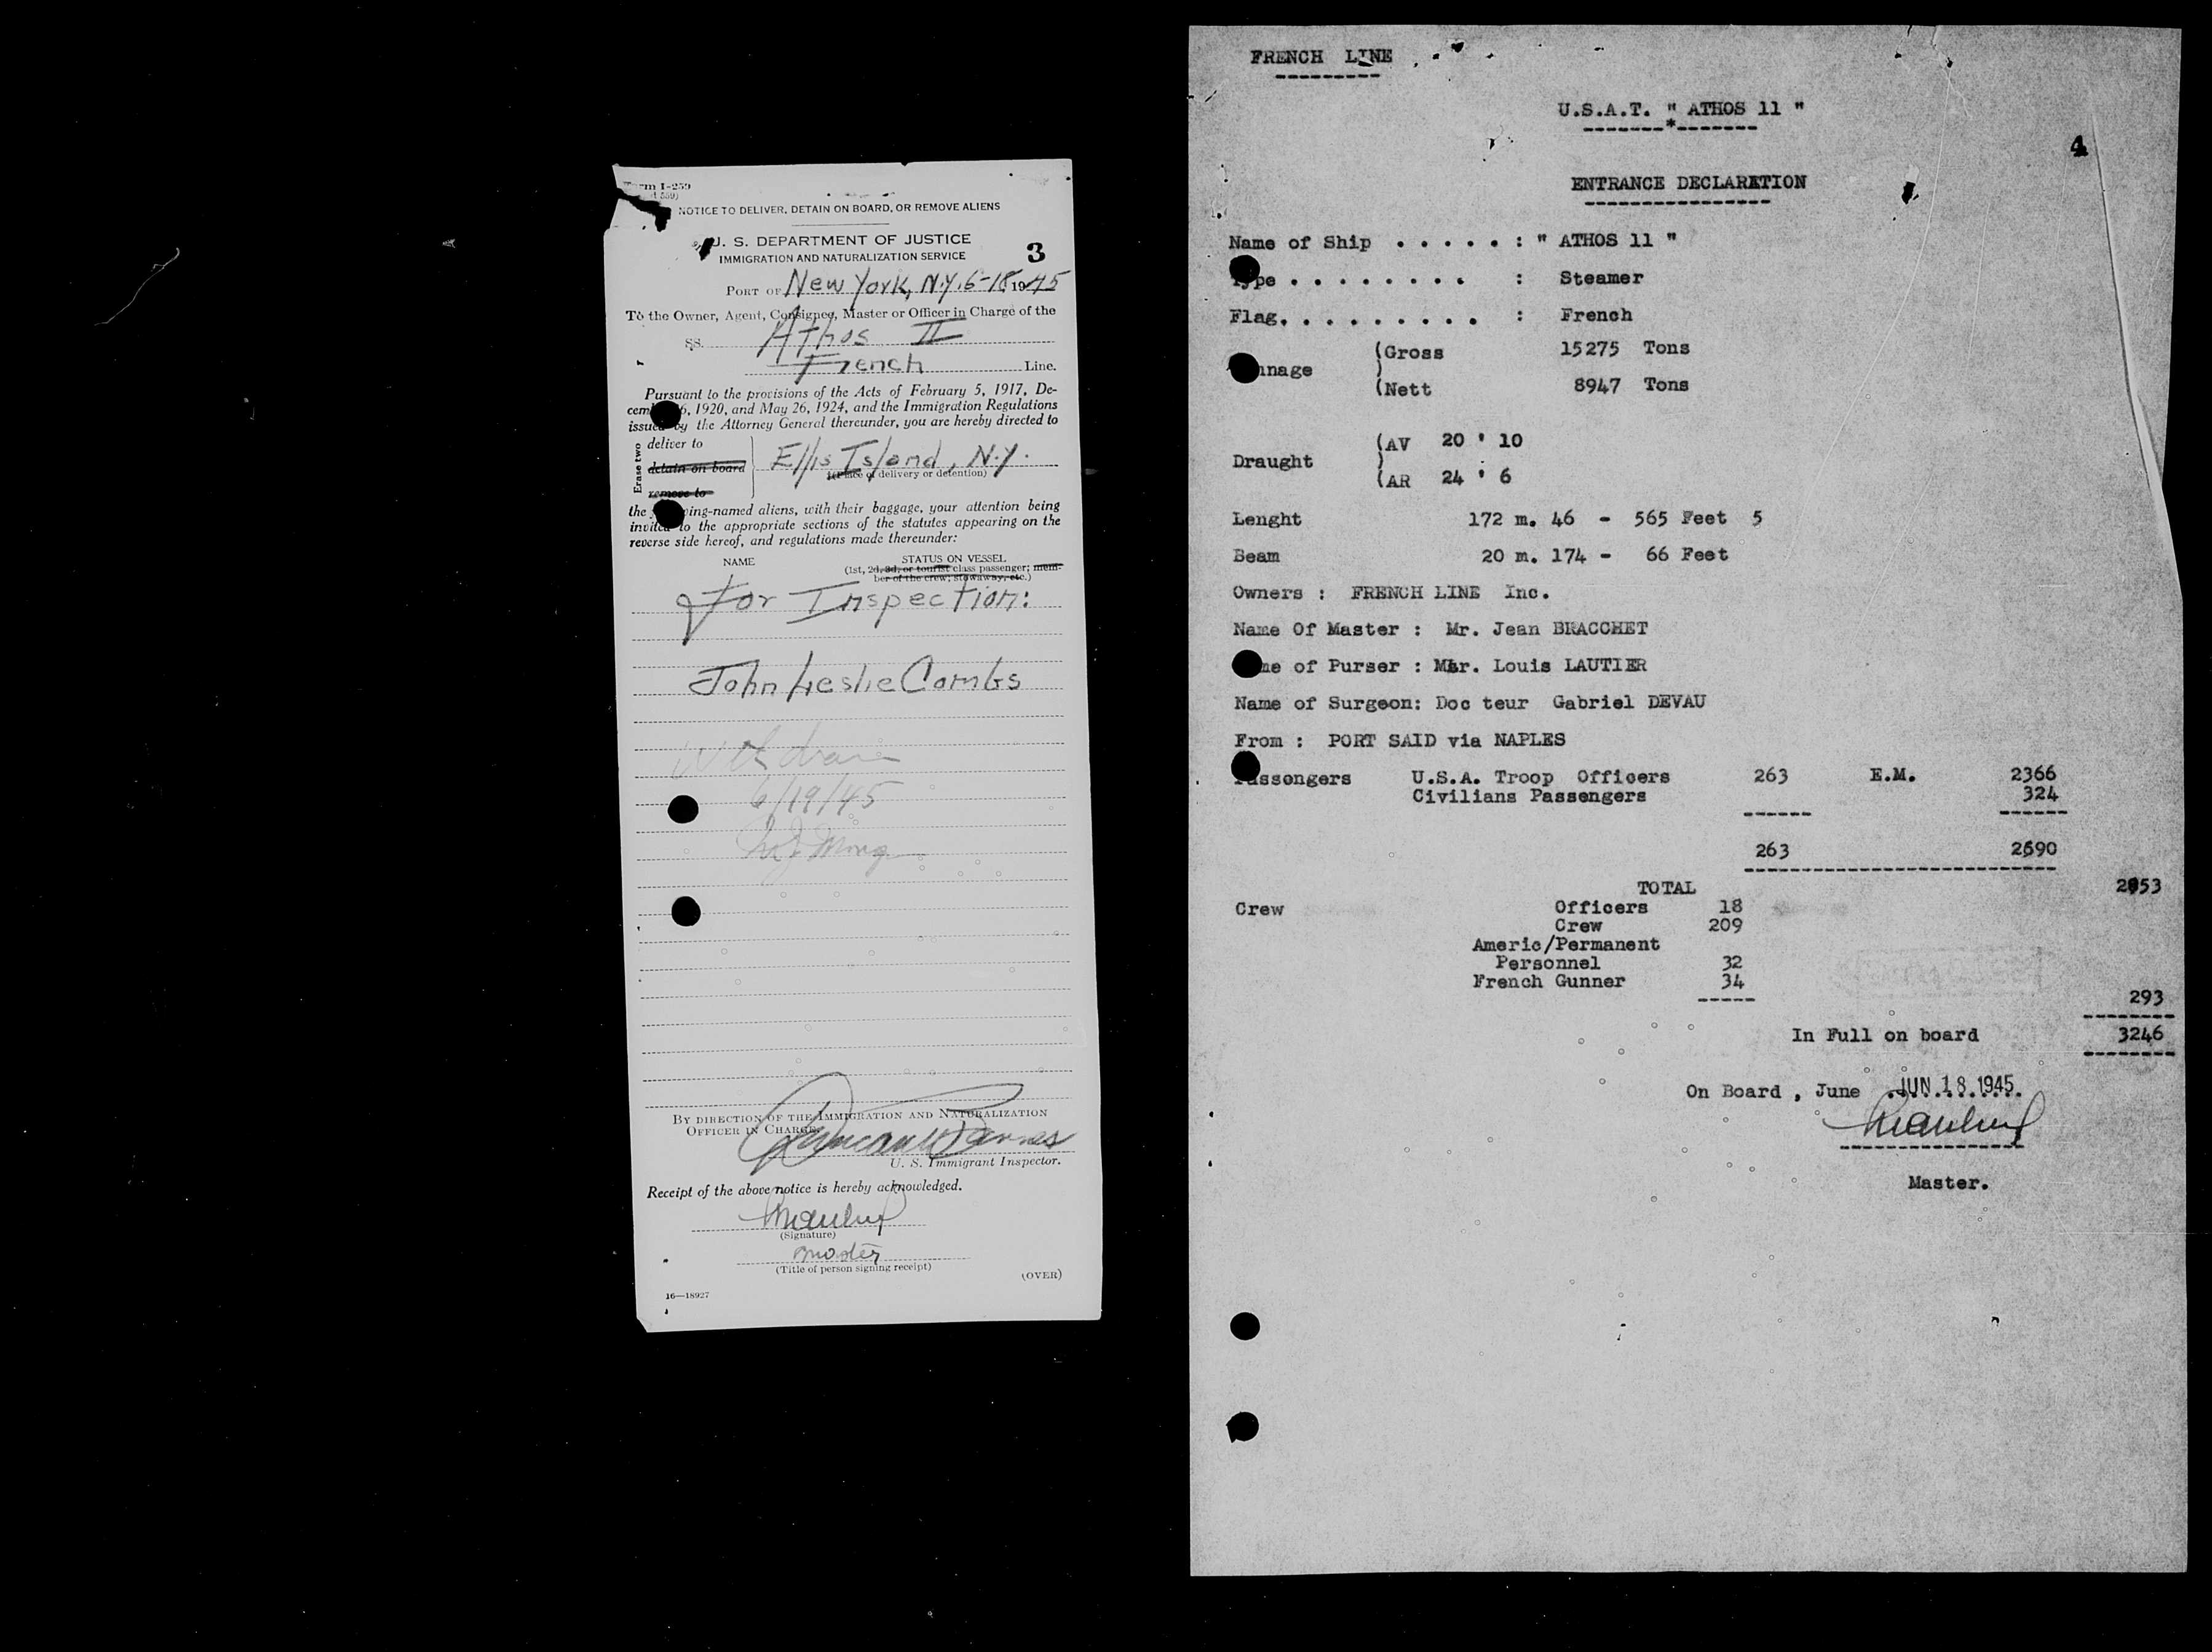 Form I-259
NOTICE TO DELIVER, DETAIN ON BOARD, OR REMOVE ALIENS
U. S. DEPARTMENT OF JUSTICE
IMMIGRATION AND NATURALIZATION SERVICE
3
PORT OF New York, N.Y. 6-18 1945
To the Owner, Agent, Consignee, Master or Officer in Charge of the
SS. Athos II
French Line.
Pursuant to the provisions of the Acts of February 5, 1917, De-
cem 6, 1920, and May 26, 1924, and the Immigration Regulations
issued by the Attorney General thereunder, you are hereby directed to
Erase two
deliver to
detain on board
remove to
Ellis Island, N.Y.
(Place of delivery or detention)
the ing-named aliens, with their baggage, your attention being
invited to the appropriate sections of the statutes appearing on the
reverse side hereof, and regulations made thereunder:
NAME STATUS ON VESSEL
(1st, 2d, 3d, or tourist class passenger; mem-
ber of the crew; stowaway, etc.)
For Inspection:
John Leslie Combs
6/19/45
BY DIRECTION OF THE IMMIGRATION AND NATURALIZATION
OFFICER IN CHARGE
U. S. Immigrant Inspector.
Receipt of the above notice is hereby acknowledged.
(Signature)
master
(Title of person signing receipt)
(OVER)
16—18927
FRENCH LINE
U.S.A.T. " ATHOS 11 "
-------*-------
4
ENTRANCE DECLARATION
Name of Ship . . . . . : " ATHOS 11 "
ype . . . . . . . . : Steamer
Flag. . . . . . . . . : French
nnage (Gross 15275 Tons
)
(Nett 8947 Tons
Draught (AV 20 ' 10
)
(AR 24 ' 6
Lenght 172 m. 46 - 565 Feet 5
Beam 20 m. 174 - 66 Feet
Owners : FRENCH LINE Inc.
Name Of Master : Mr. Jean BRACCHET
me of Purser : Mr. Louis LAUTIER
Name of Surgeon: Doc teur Gabriel DEVAU
From : PORT SAID via NAPLES
assengers U.S.A. Troop Officers 263 E.M. 2366
Civilians Passengers 324
263 2690
TOTAL 2953
Crew Officers 18
Crew 209
Americ/Permanent
Personnel 32
French Gunner 34
293
In Full on board 3246
On Board , June JUN 18 1945
Master.